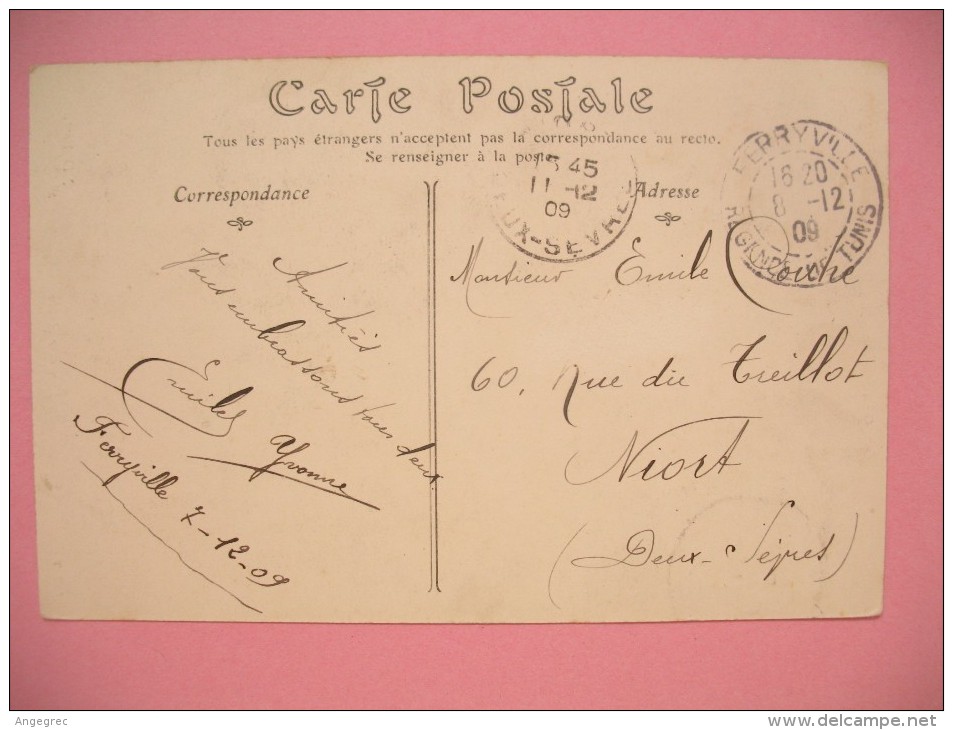 Carte Postale
Tous les pays étrangers n'acceptent pas la correspondance au recto.
Se renseigner à la poste.
Correspondance
Adresse
45
11 -12
09
UX-SEVRE
FERRYVILLE
16 20
8 -12
09
REGENCE DE TUNIS
Amitiés
Vous embrassons tous deux.
Emile
Yvonne
Ferryville 7-12-09
Monsieur Emile
60, Rue du Treillot
Niort
(Deux-Sèvres)
Angegrec
www.delcampe.net